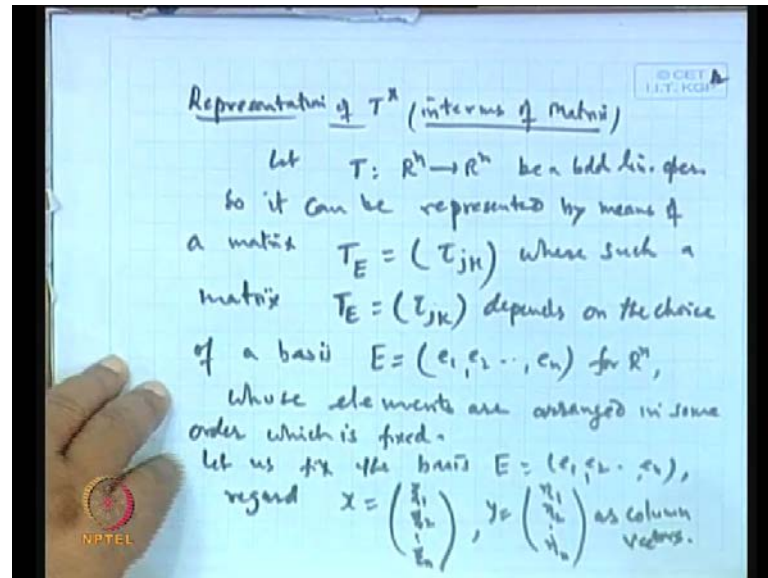 © CET
I.I.T. KGP
Representation of T^x (in terms of Matrix)
Let T: R^n → R^n be a bdd lin. oper.
So it can be represented by means of
a matrix T_E = (τ_jk) where such a
matrix T_E = (τ_jk) depends on the choice
of a basis E = (e_1, e_2 .., e_n) for R^n,
whose elements are arranged in some
order which is fixed.
Let us fix the basis E = (e_1, e_2 . , e_n),
regard x = (ξ_1 ξ_2 : ξ_n), y = (η_1 η_2 : η_n) as column
vectors.
NPTEL